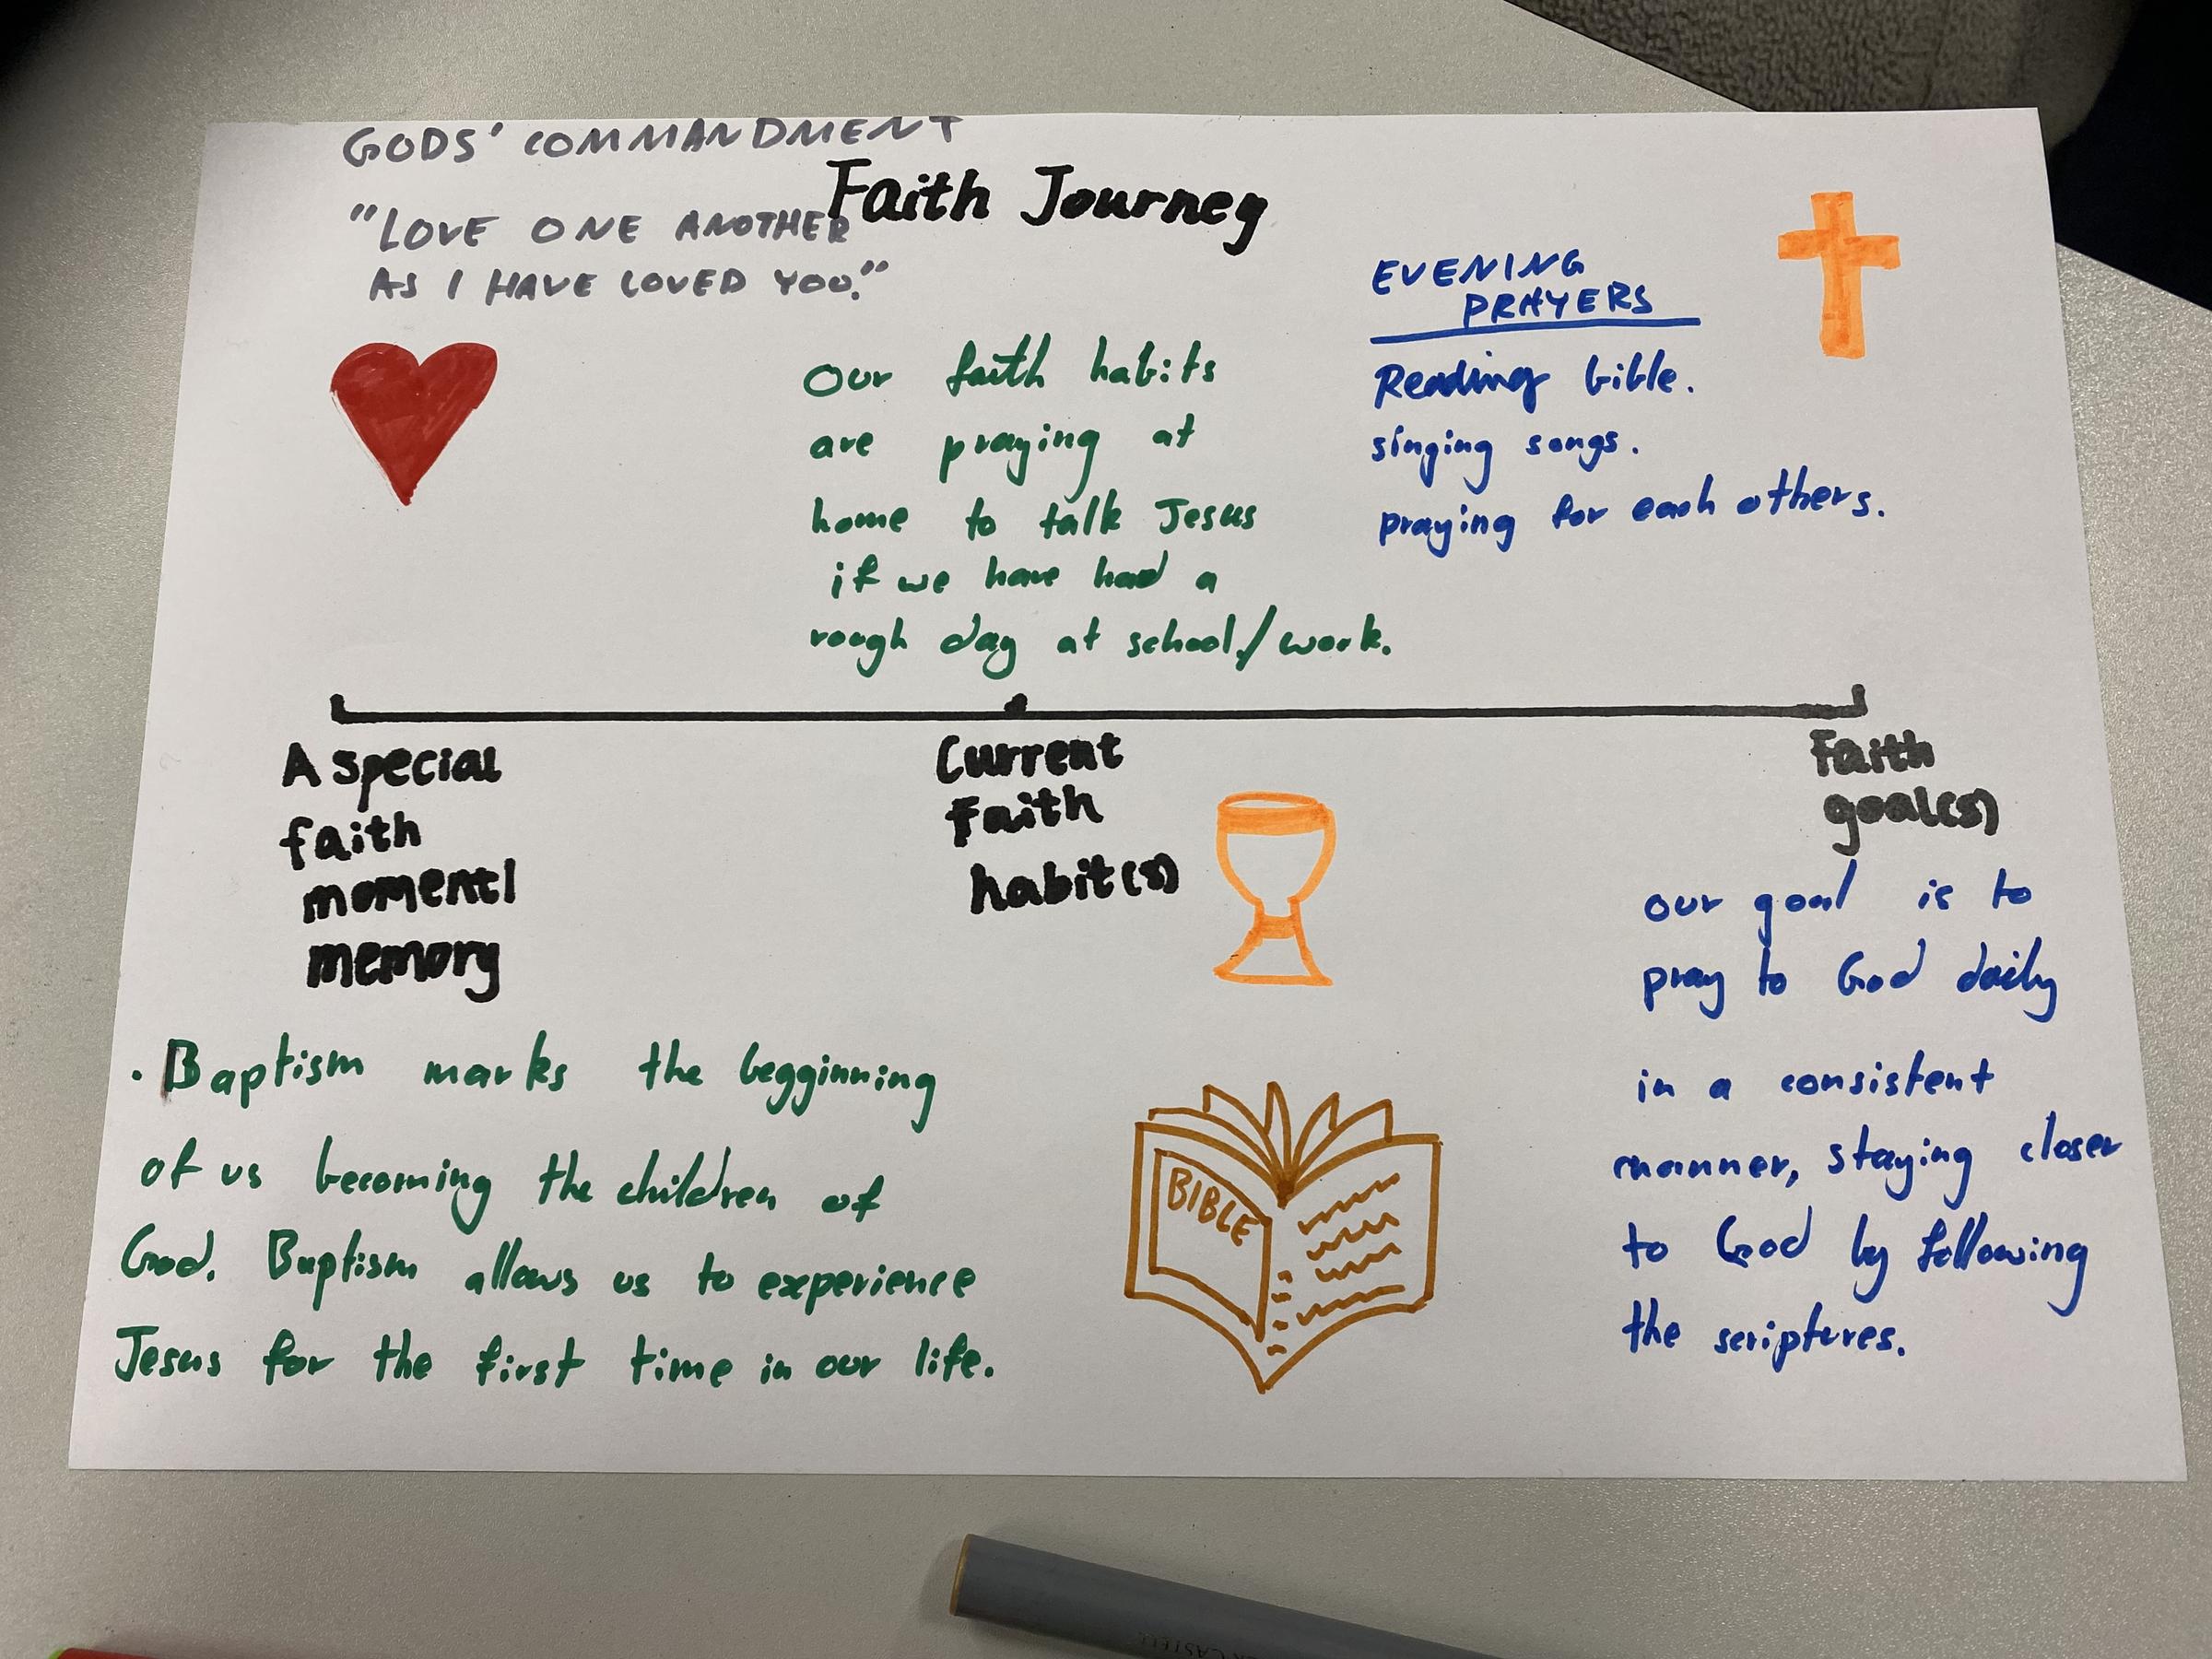 GODS' COMMANDMENT
Faith Journey
"LOVE ONE ANOTHER
AS I HAVE LOVED YOU."
EVENING
PRAYERS
Reading bible.
singing songs.
praying for each others.
Our faith habits
are praying at
home to talk Jesus
if we have had a
rough day at school/work.
A special
faith
moment/
memory
Current
Faith
habit(s)
Faith
goal(s)
our goal is to
pray to God daily
in a consistent
manner, staying closer
to God by following
the scriptures.
. Baptism marks the begginning
of us becoming the children of
God. Baptism allows us to experience
Jesus for the first time in our life.
BIBLE